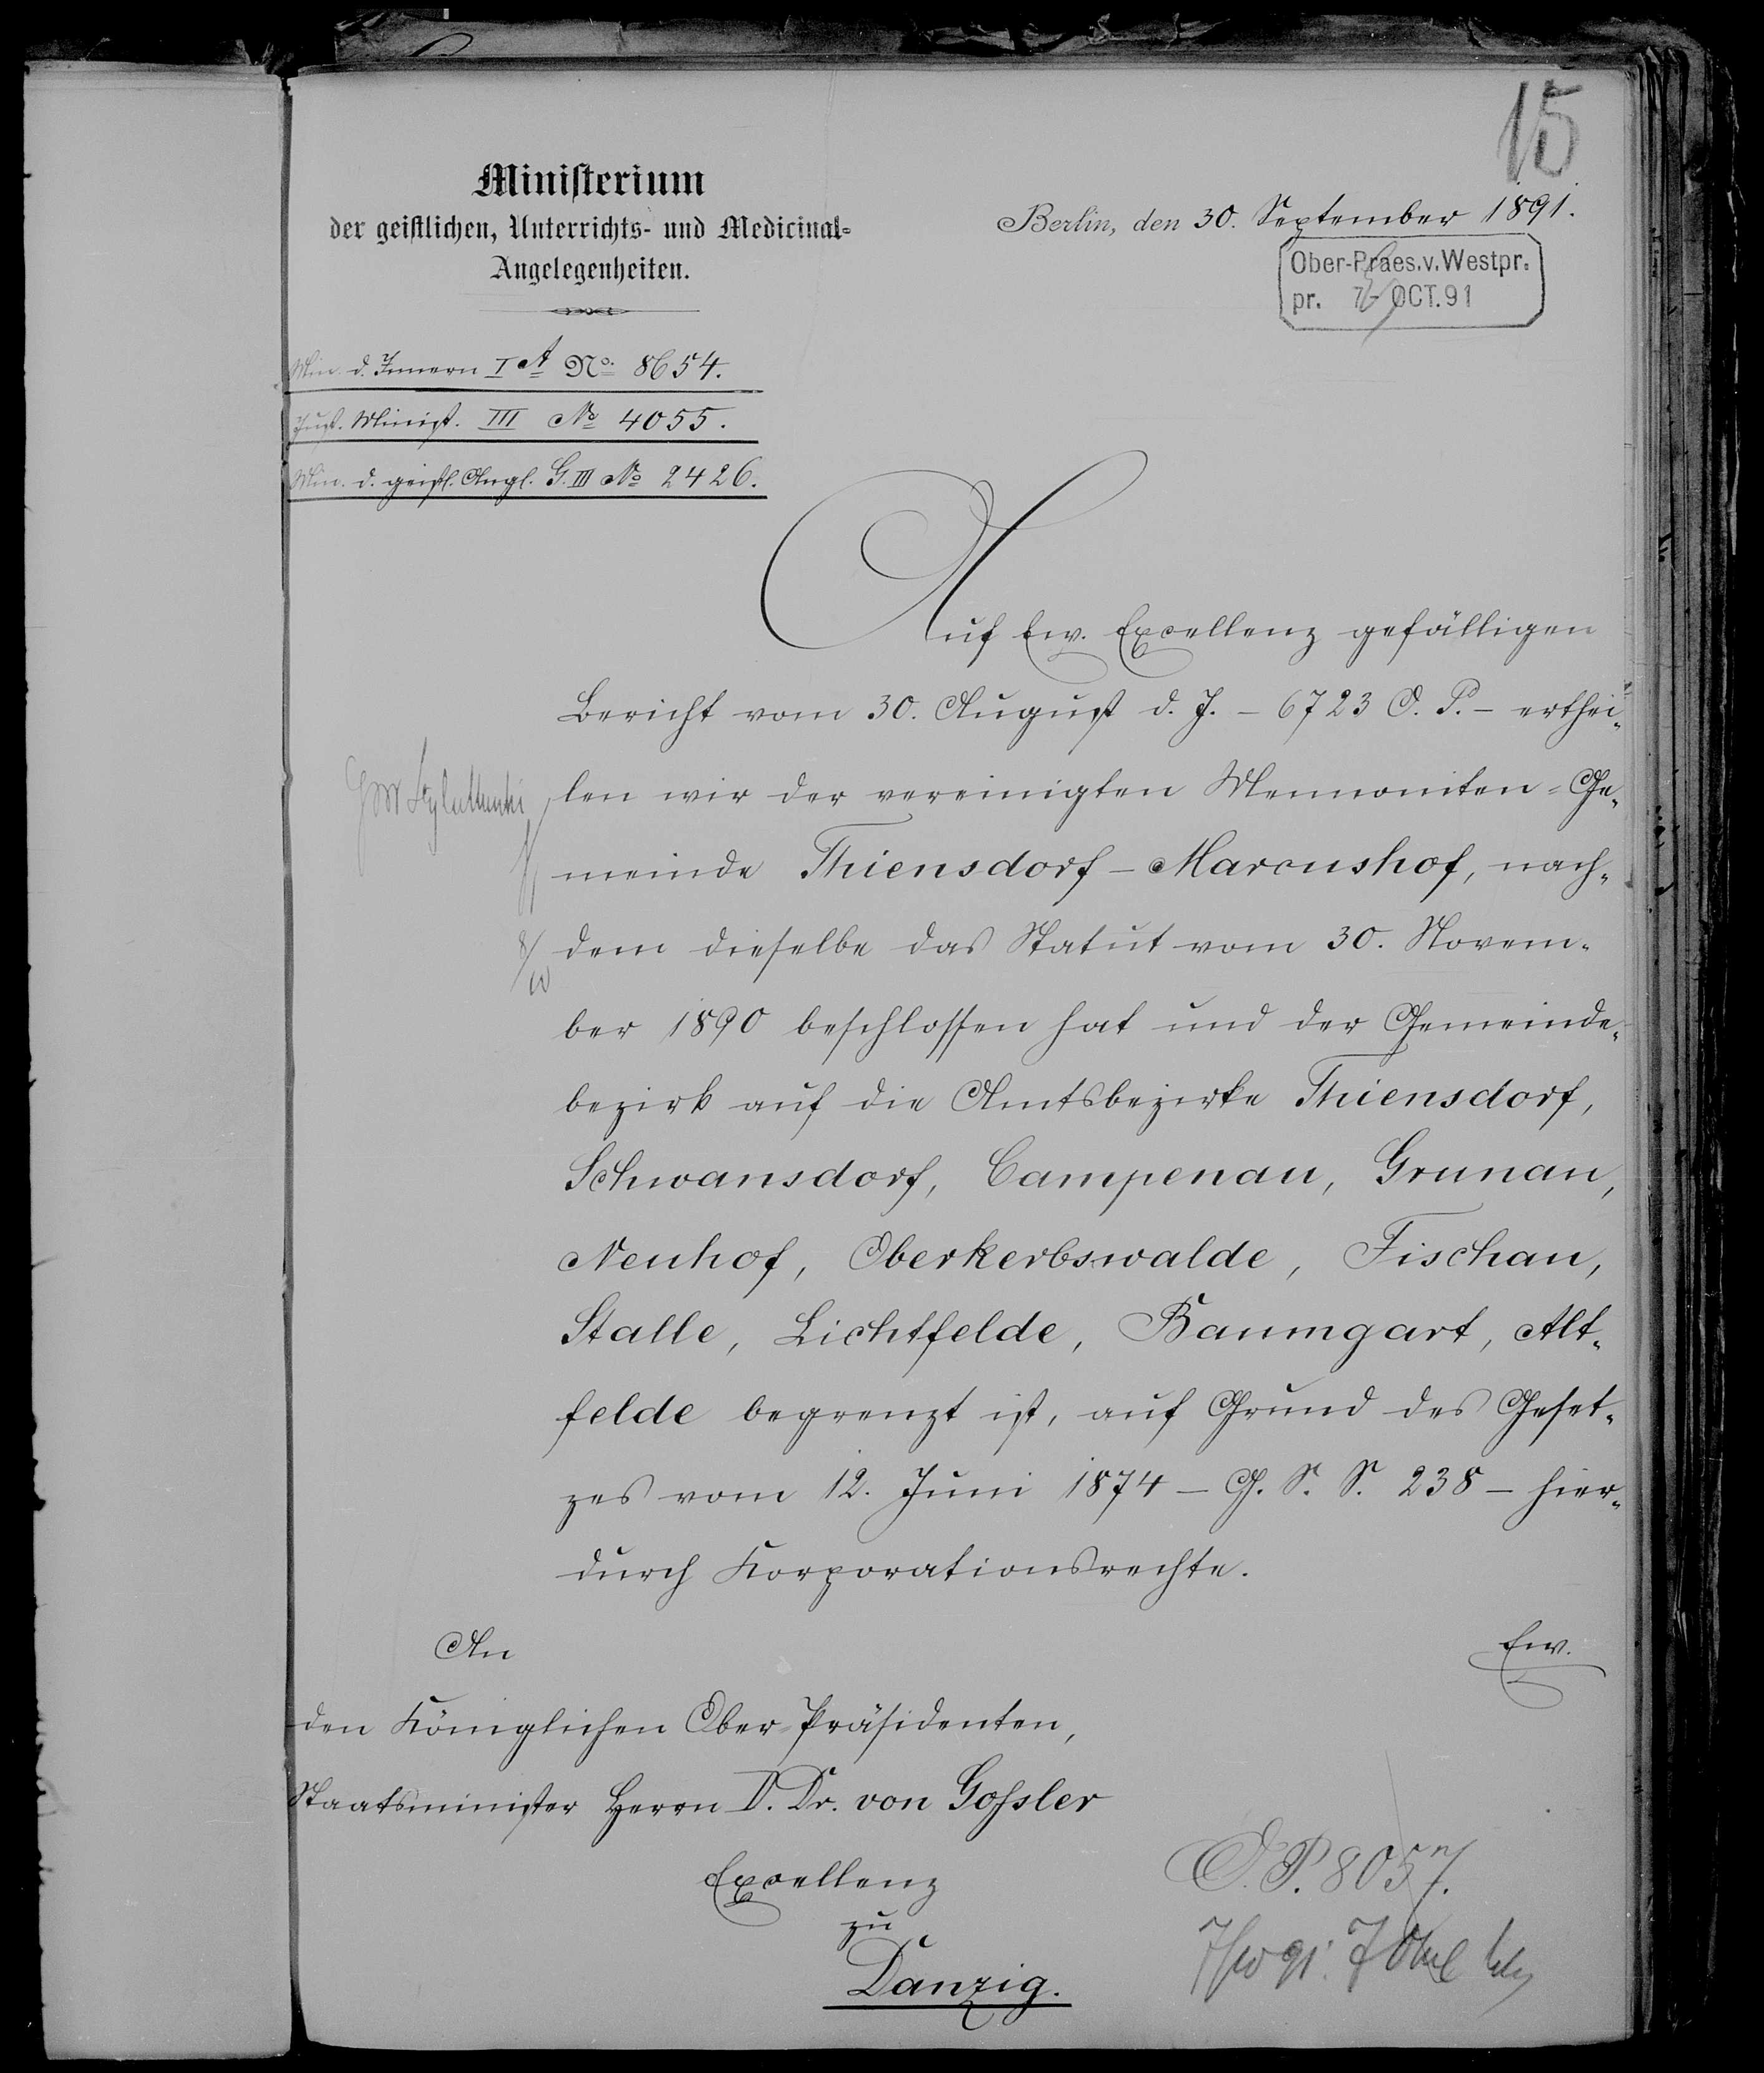 15
Ministerium
der geistlichen, Unterrichts- und Medicinal-
Angelegenheiten.
Berlin, den 30. September 1891.
Ober-Praes.v.Westpr.
pr. 7- OCT.91
Min. d. Innern I A No. 8654.
Just. Minist. III No 4055.
Min. d. geistl. Angl. G. III No 2426.
Auf Ew. Excellenz gefälligen
Bericht vom 30. August d. J. – 6723 O. P. – erthei-
len wir der vereinigten Mennoniten-Ge-
meinde Thiensdorf–Marcushof, nach-
dem dieselbe das Statut vom 30. Novem-
ber 1890 beschlossen hat und der Gemeinde-
bezirk auf die Amtsbezirke Thiensdorf,
Schwansdorf, Campenau, Grunau,
Neuhof, Oberkerbswalde, Fischau,
Stalle, Lichtfelde, Baumgart, Alt-
felde begrenzt ist, auf Grund des Geset-
zes vom 12. Juni 1874 – G. S. S. 238 – hier-
durch Korporationsrechte.
Ew.
An
den Königlichen Ober-Präsidenten,
Staatsminister Herrn D. Dr. von Gossler
Excellenz
zu
Danzig.
8/10
O. P. 8057.
7/10 91.